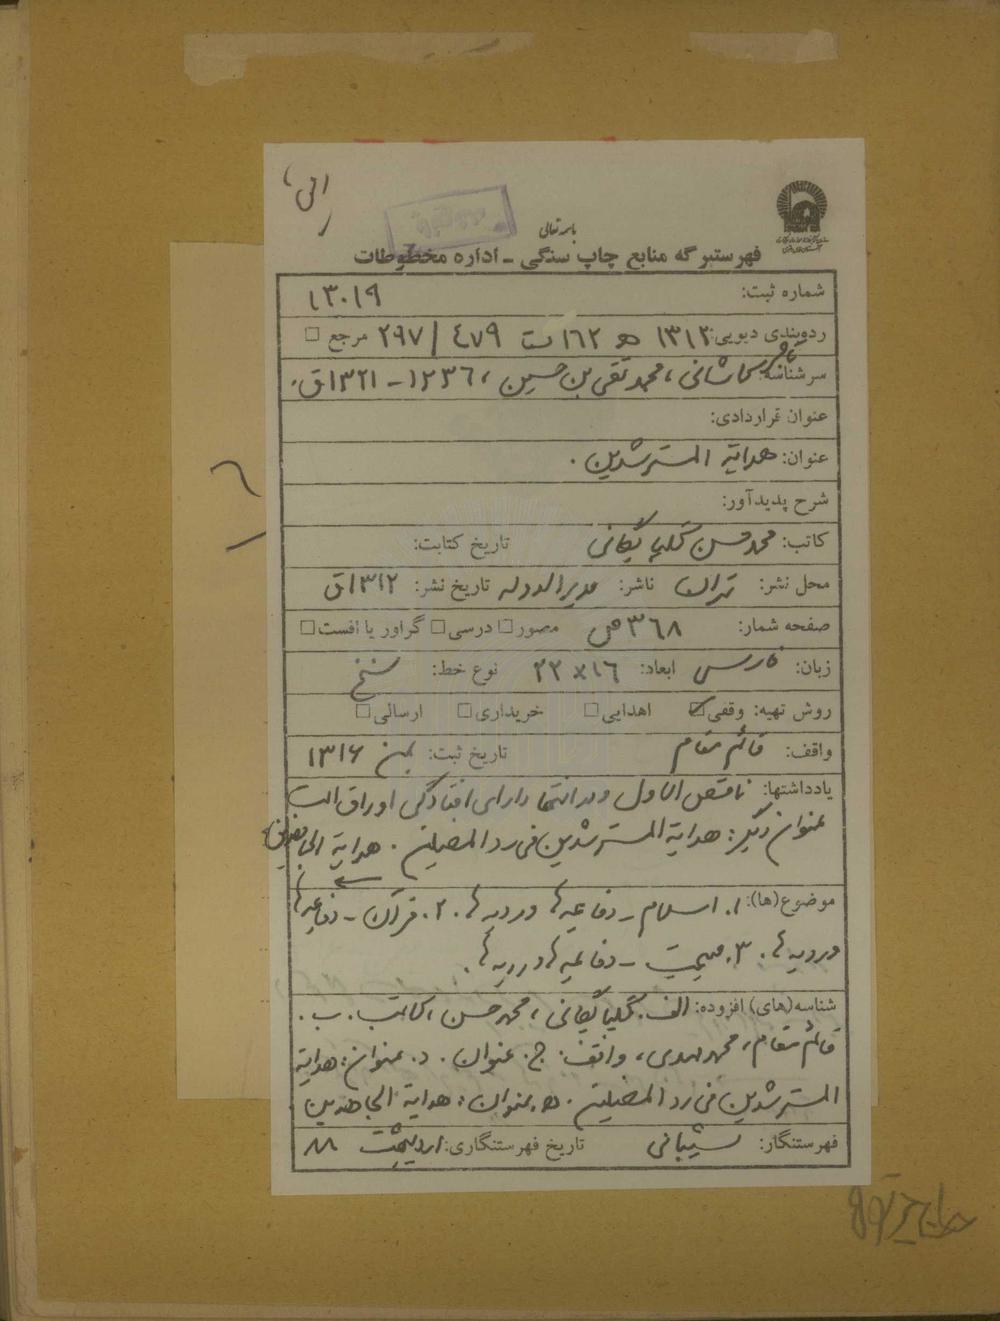 باسمه تعالی
فهرستبرگه منابع چاپ سنگی - اداره مخطوطات
شماره ثبت: ۱۳۰۱۹
رده‌بندی دیویی: ۱۳۱۲ ۱۶۲ ھ ۴۷۹ / ۲۹۷ مرجع □
سرشناسه: کاشانی، محمد تقی بن حسین، ۱۲۳۶ - ۱۳۲۱ق.
عنوان قراردادی:
عنوان: هدایة المسترشدین.
شرح پدیدآور:
کاتب: محمدحسن گلپایگانی تاریخ کتابت:
محل نشر: تهران ناشر: مدیرالدوله تاریخ نشر: ۱۳۱۲ق
صفحه شمار: ۳۶۸ص مصور□ درسی□ گراور یا افست□
زبان: فارسی ابعاد: ۱۶×۲۲ نوع خط: نسخ
روش تهیه: وقفی☑ اهدایی□ خریداری□ ارسالی□
واقف: قائم مقام تاریخ ثبت: بهمن ۱۳۱۶
یادداشتها: ناقص الاول و در انتها دارای افتادگی اوراق است
عنوان دیگر: هدایة المسترشدین فی رد المضلین. هدایة الجاهدین
موضوع(ها): ۱. اسلام - دفاعیه‌ها و ردیه‌ها. ۲. قرآن - دفاعیه‌ها
و ردیه‌ها. ۳. مسیحیت - دفاعیه‌ها و ردیه‌ها.
شناسه(های) افزوده: الف. گلپایگانی، محمدحسن، کاتب. ب.
قائم مقام، محمدمهدی، واقف. ج. عنوان. د. عنوان: هدایة
المسترشدین فی رد المضلین. ه. عنوان: هدایة الجاهدین
فهرستنگار: شیبانی تاریخ فهرستنگاری: اردیبهشت ۸۸